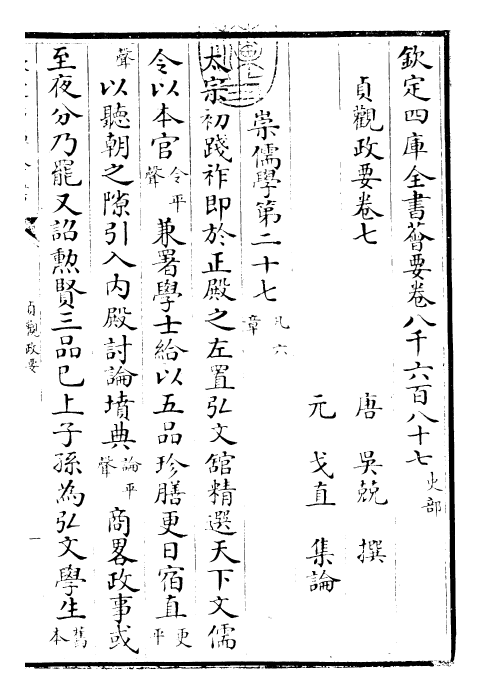 欽定四庫全書薈要卷八千六百八十七 史部
貞觀政要卷七
唐 吳兢 撰
元 戈直 集論
崇儒學第二十七 凡六章
太宗初踐祚即於正殿之左置弘文舘精選天下文儒
令以本官 令平聲 兼署學士給以五品珍膳更日宿直 更平
聲 以聽朝之隙引入内殿討論墳典 論平聲 商畧政事或
至夜分乃罷又詔勲賢三品已上子孫為弘文學生 舊本
貞觀政要
一